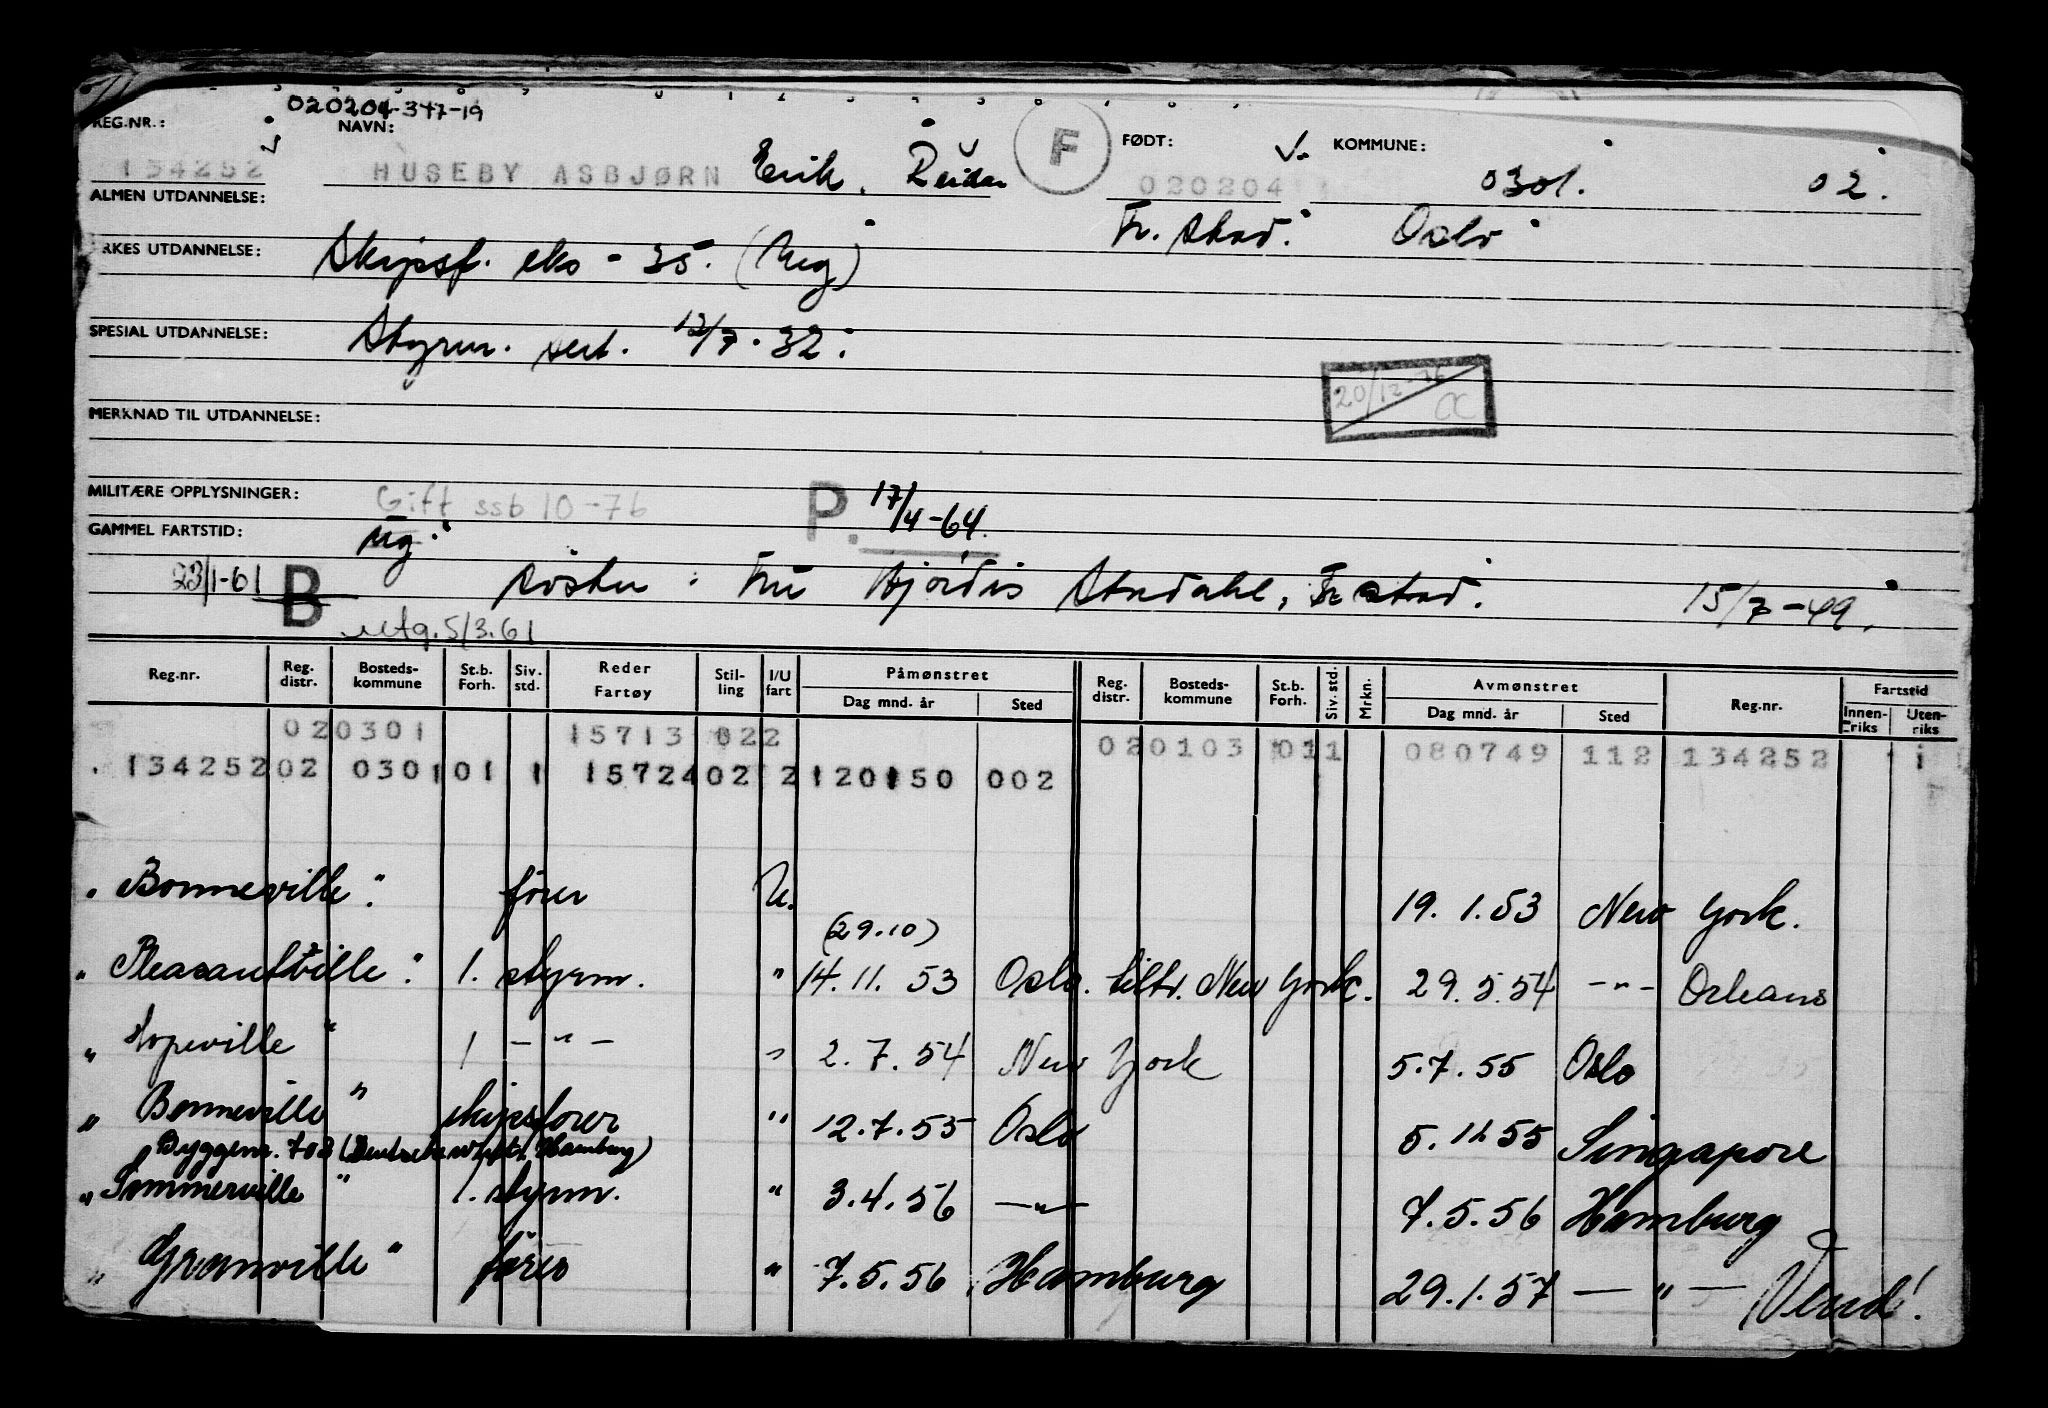 020204-347-19
REG.NR.: NAVN: F FØDT: KOMMUNE:
134252 HUSEBY ASBJØRN Erik, Reidar 020204 0301. 02.
ALMEN UTDANNELSE: Fr. stad. Oslo
YRKES UTDANNELSE: Skipsf. eks - 35. (Ug)
SPESIAL UTDANNELSE: Styrm. sert. 12/7. 32.
20/12-76
MERKNAD TIL UTDANNELSE:
MILITÆRE OPPLYSNINGER: Gift ssb 10-76 P. 17/4-64.
GAMMEL FARTSTID: Ug.
23/1-61 B søster: Fru Hjørdis Stadahl, Fr stad. 15/7-49.
utg. 5/3.61
Reg.nr. Reg. distr. Bosteds-kommune St.b. Forh. Siv. std. Reder Fartøy Stil-ling I/U fart Påmønstret Dag mnd. år Sted Reg. distr. Bosteds-kommune St.b. Forh. Siv. std. Mrkn. Avmønstret Dag mnd. år Sted Reg.nr. Fartstid Innen-riks Uten-riks
020301 15713 022 020103 011 080749 112 134252 1
134252 02 0301 01 1 15724 02 2 120150 002
"Bonneville" fører U. 19.1.53 New York.
(29.10)
"Pleasantville" 1. styrm. " 14.11.53 Oslo. tiltr. New York. 29.5.54 -"- Orleans
"Hopeville" 1 -"- " 2.7.54 New York 5.7.55 Oslo
"Bonneville" skipsfører " 12.7.55 Oslo 5.12.55 Singapore
Byggenr. 703 (Deutsche Werft, Hamburg)
"Sommerville" 1. styrm. " 3.4.56 -"- 7.5.56 Hamburg
"Granville" fører " 7.5.56 Hamburg 29.1.57 -"- Vend!